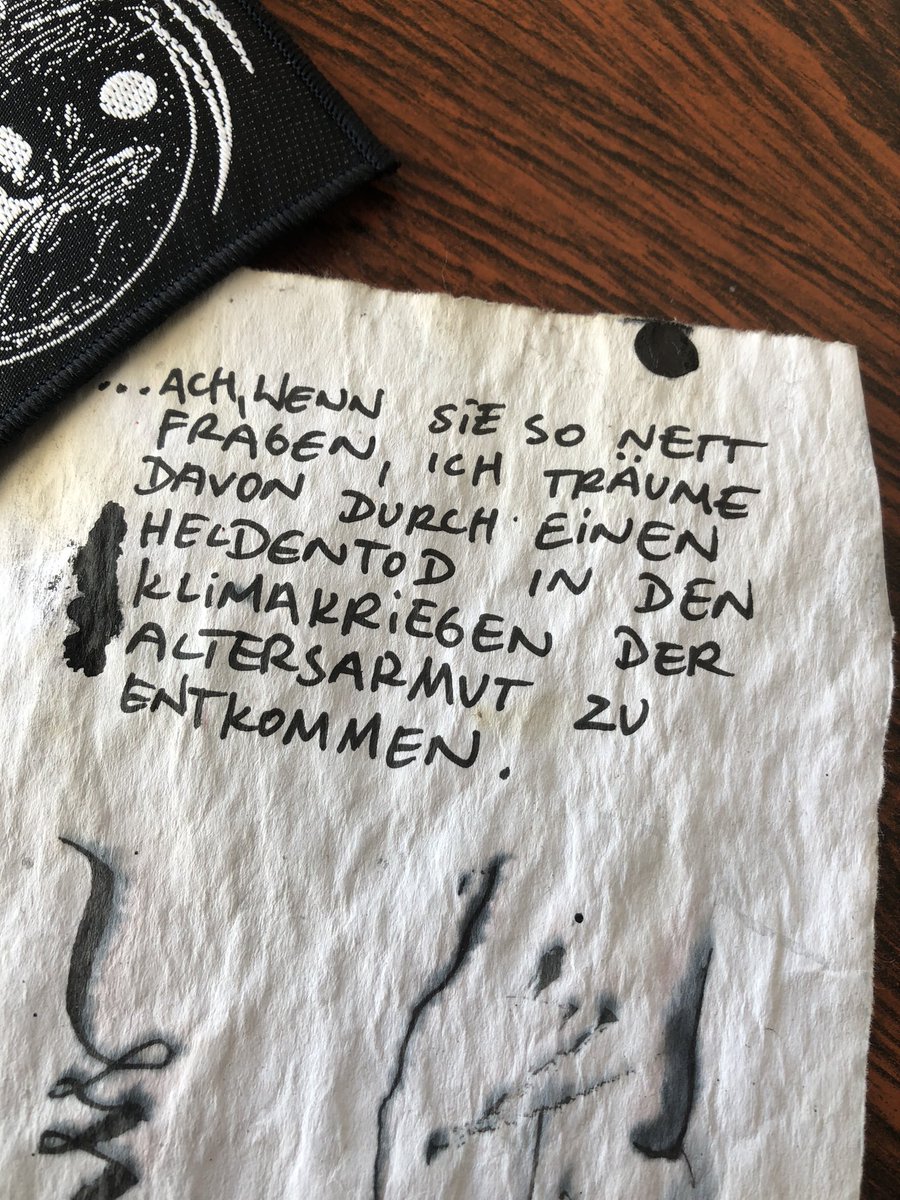 ...ACH, WENN SiE SO NETT
FRAGEN, ICH TRÄUME
DAVON DURCH EiNEN
HELDENTOD IN DEN
KLiMAKRiEGEN DER
ALTERSARMUT ZU
ENTKOMMEN.